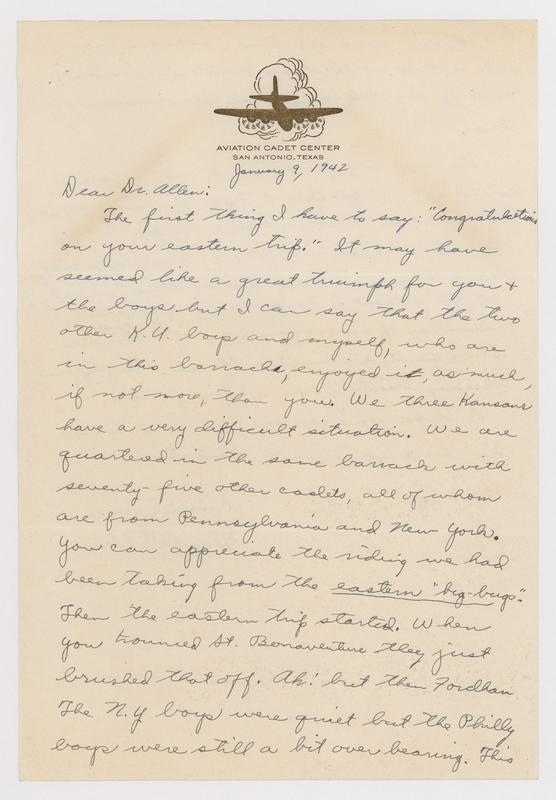 AVIATION CADET CENTER
SAN ANTONIO, TEXAS
January 9, 1942
Dear Dr. Allen:
The first thing I have to say: "Congratulations
on your eastern trip." It may have
seemed like a great triumph for you +
the boys but I can say that the two
other K.U. boys and myself, who are
in this barracks, enjoyed it, as much,
if not more, than you. We three Kansans
have a very difficult situation. We are
quartered in the same barrack with
seventy-five other cadets, all of whom
are from Pennsylvania and New York.
You can appreciate the riding we had
been taking from the eastern "big-bugs".
Then the eastern trip started. When
you trounced St. Bonaventure they just
brushed that off. Ah! but then Fordham.
The N.Y boys were quiet but the Philly
boys were still a bit over bearing. This